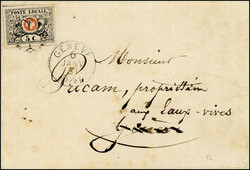 POSTE LOCALE
5 C
GENÈVE
6
Monsieur
Pricam, propriétaire
aux Eaux-vives